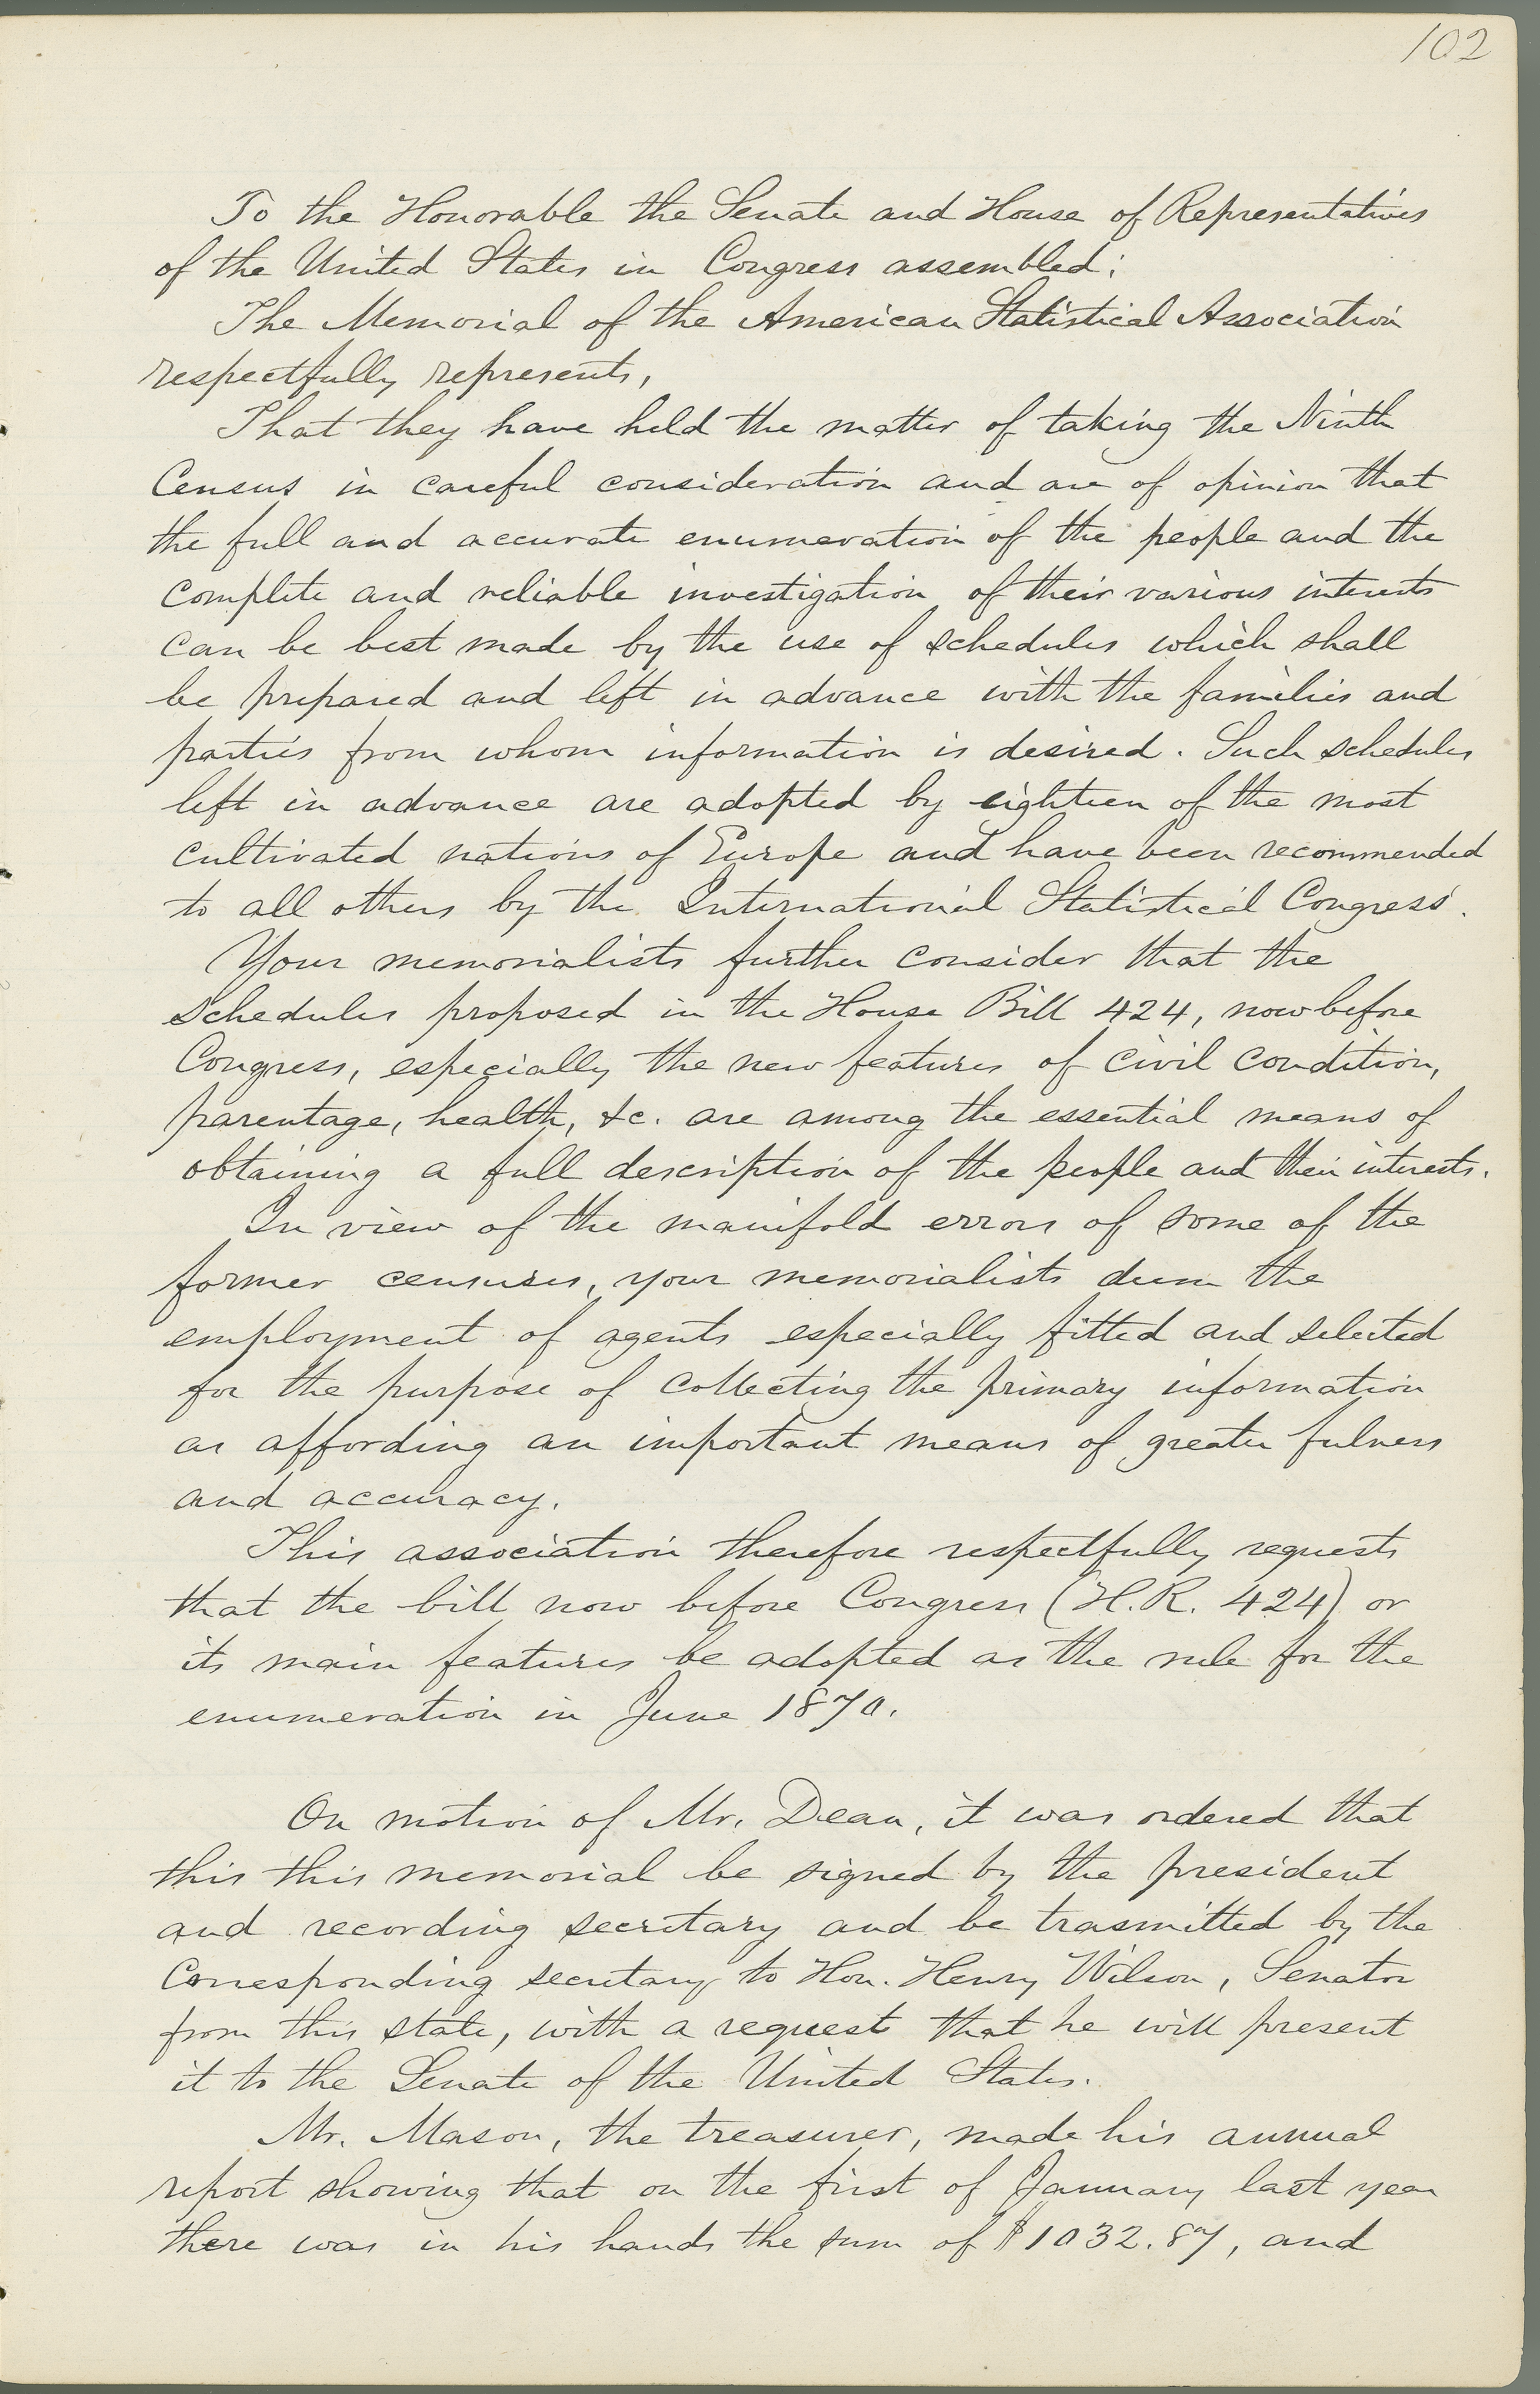 102
To the Honorable the Senate and House of Representatives
of the United States in Congress assembled:
The Memorial of the American Statistical Association
respectfully represents,
That they have held the matter of taking the Ninth
Census in careful consideration and are of opinion that
the full and accurate enumeration of the people and the
complete and reliable investigation of their various interests
can be best made by the use of schedules which shall
be prepared and left in advance with the families and
parties from whom information is desired. Such schedules
left in advance are adopted by eighteen of the most
cultivated nations of Europe and have been recommended
to all others by the International Statistical Congress.
Your memorialists further consider that the
schedules proposed in the House Bill 424, now before
Congress, especially the new features of civil condition,
parentage, health, &c. are among the essential means of
obtaining a full description of the people and their interests.
In view of the manifold errors of some of the
former censuses, your memorialists deem the
employment of agents especially fitted and selected
for the purpose of collecting the primary information
as affording an important means of greater fulness
and accuracy.
This association therefore respectfully requests
that the bill now before Congress (H.R. 424) or
its main features be adopted as the rule for the
enumeration in June 1870.
On motion of Mr. Dean, it was ordered that
this this memorial be signed by the president
and recording secretary and be trasmitted by the
Corresponding secretary to Hon. Henry Wilson, Senator
from this state, with a request that he will present
it to the Senate of the United States.
Mr. Mason, the treasurer, made his annual
report showing that on the first of January last year
there was in his hands the sum of $1032.87, and